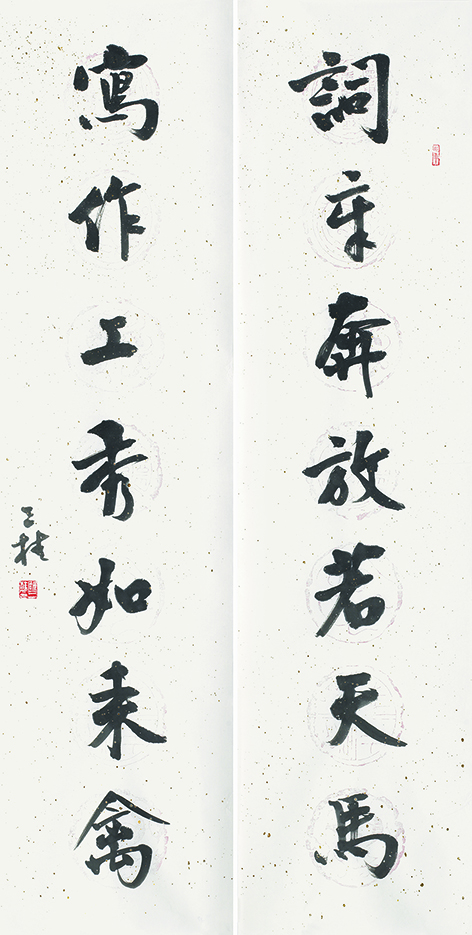 詞章奔放若天馬
寫作工秀如来禽
桂